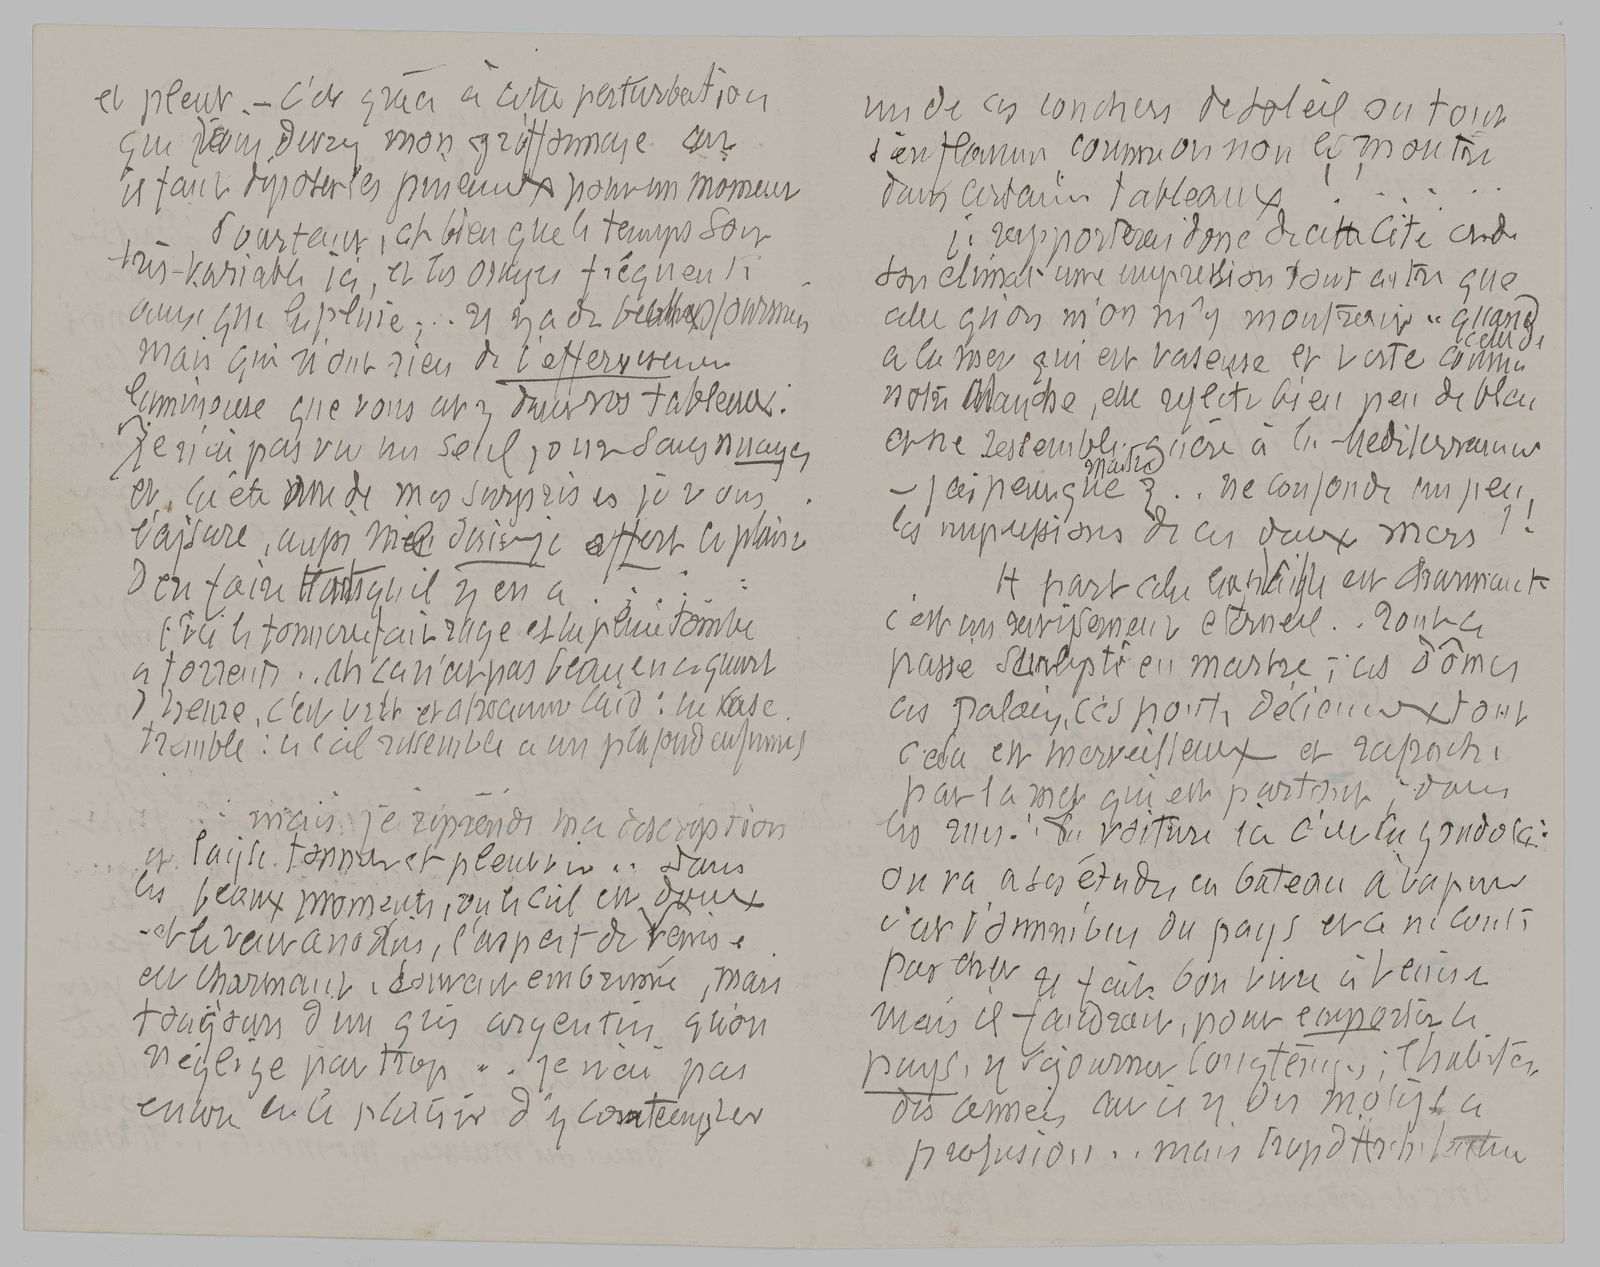 et pleut. – C'est grâce à cette perturbation
que vous devez mon griffonnage car
il faut déposer les pinceaux pour un moment
Pourtant, et bien que le temps soit
très-variable ici, et les orages fréquents
ainsi que la pluie ; .. il y a de belles journées
mais qui n'ont rien de l'effervescence
lumineuse que vous avez dans vos tableaux.
Je n'ai pas vu un seul jour sans nuages
et, ça été une de mes surprises je vous
l'assure, aussi
d'en faire tant qu'il y en a . . . .
ici le tonnerre fait rage et la pluie tombe
a torrents .. Ah ça n'est pas beau en ce quart
d'heure, c'est vert et absolument laid : la case
tremble : le ciel ressemble a un plafond enfumé
mais je reprends ma description
et laisse tonner et pleuvoir .. dans
les beaux moments, ou le ciel est doux
et le vent anodin, l'aspect de Venise
est charmant, souvent embrumé, mais
toujours d'un gris argentin qu'on
néglige par trop .. je n'ai pas
encore eu le plaisir d'y contempler
un de ces couchers de soleil ou tout
s'enflamme comme on nous le montre
dans certains tableaux ! ! . . . .
je rapporterai donc de cette cité et de
son climat une impression tout autre que
celle qu'on m'en montrait .. quand
a la mer qui est vaseuse et verte comme
celle de
notre Manche, elle reflète bien peu de bleu
et ne ressemble guère à la Méditerranée
– j'ai peur que Z .. ne confonde un peu
les impressions de ces deux mers !!
A part cela est charmant
c'est un ravissement éternel .. Tout ce
passé sculpté en marbre ; ces dômes
ces palais, ces ponts délicieux tout
cela est merveilleux et rapproché
par la mer qui est partout ; dans
les rues ! La voiture ici c'est la gondole :
on va a ses études en bateau à vapeur
c'est l'omnibus du pays et ça ne coute
pas cher il fait bon vivre à Venise
mais il faudrait, pour emporter ce
pays, y séjourner longtemps ; l'habiter
des années car il y a des motifs a
profusion .. mais trop d'Architecture